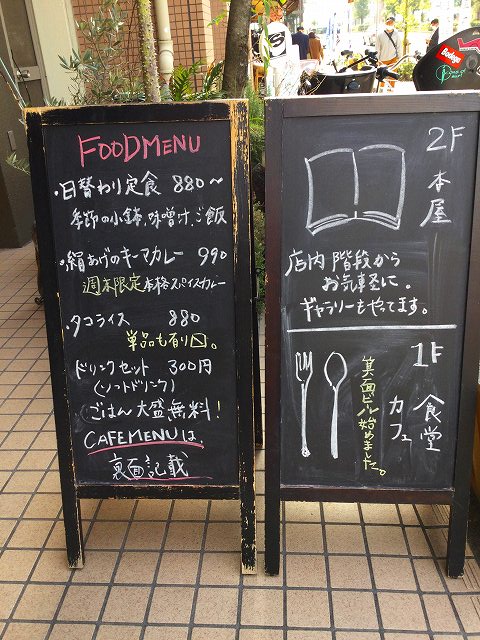 FOODMENU
・日替わり定食 880〜
季節の小鉢、味噌汁、ご飯
・絹あげのキーマカレー 990
週末限定 本格スパイスカレー
・タコライス 880
単品も有り〼。
ドリンクセット 300円
(ソフトドリンク)
ごはん大盛無料!
CAFEMENUは、
裏面記載
2F 本屋
店内 階段から
お気軽に。
ギャラリーもやってます。
1F 食堂
カフェ
箕面ビール始めました。